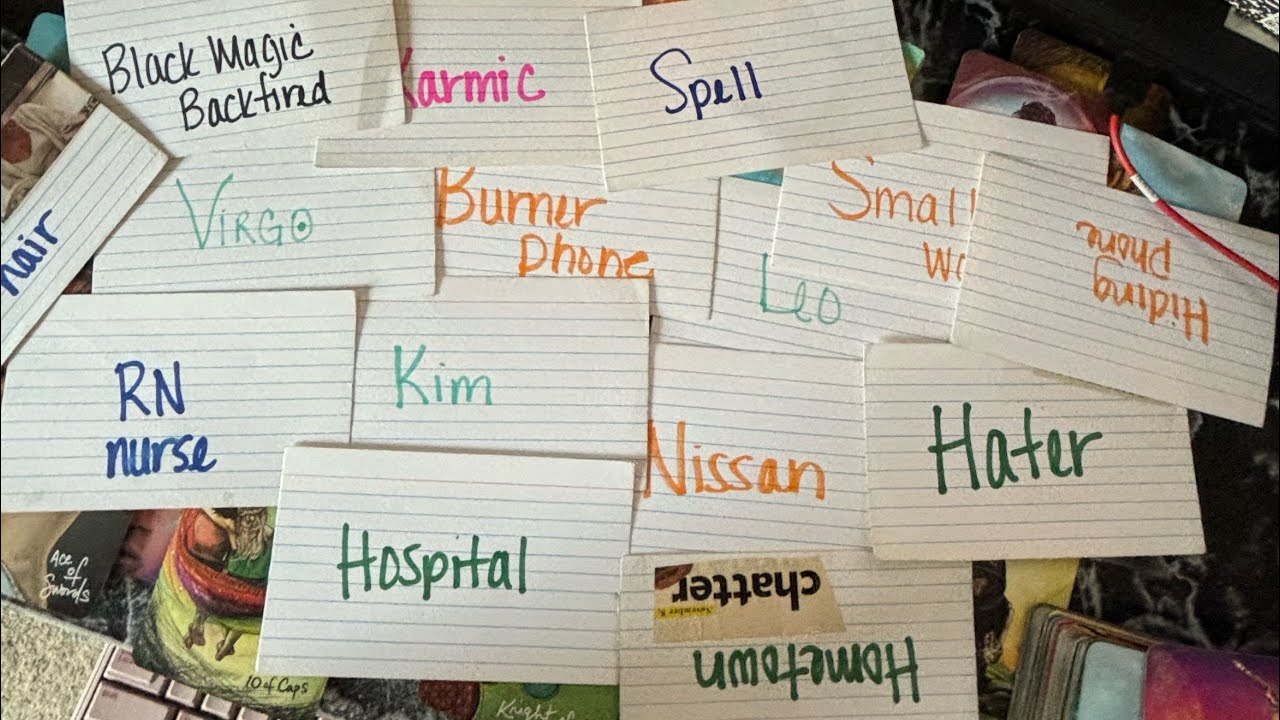 Black Magic
Backfired
Karmic
Spell
Virgo
Burner
Phone
Leo
Small
Hiding
phone
hair
RN
nurse
Kim
Nissan
Hater
Hospital
chatter
November 8,
Hometown
Ace
of
Swords
10 of Cups
Knight of